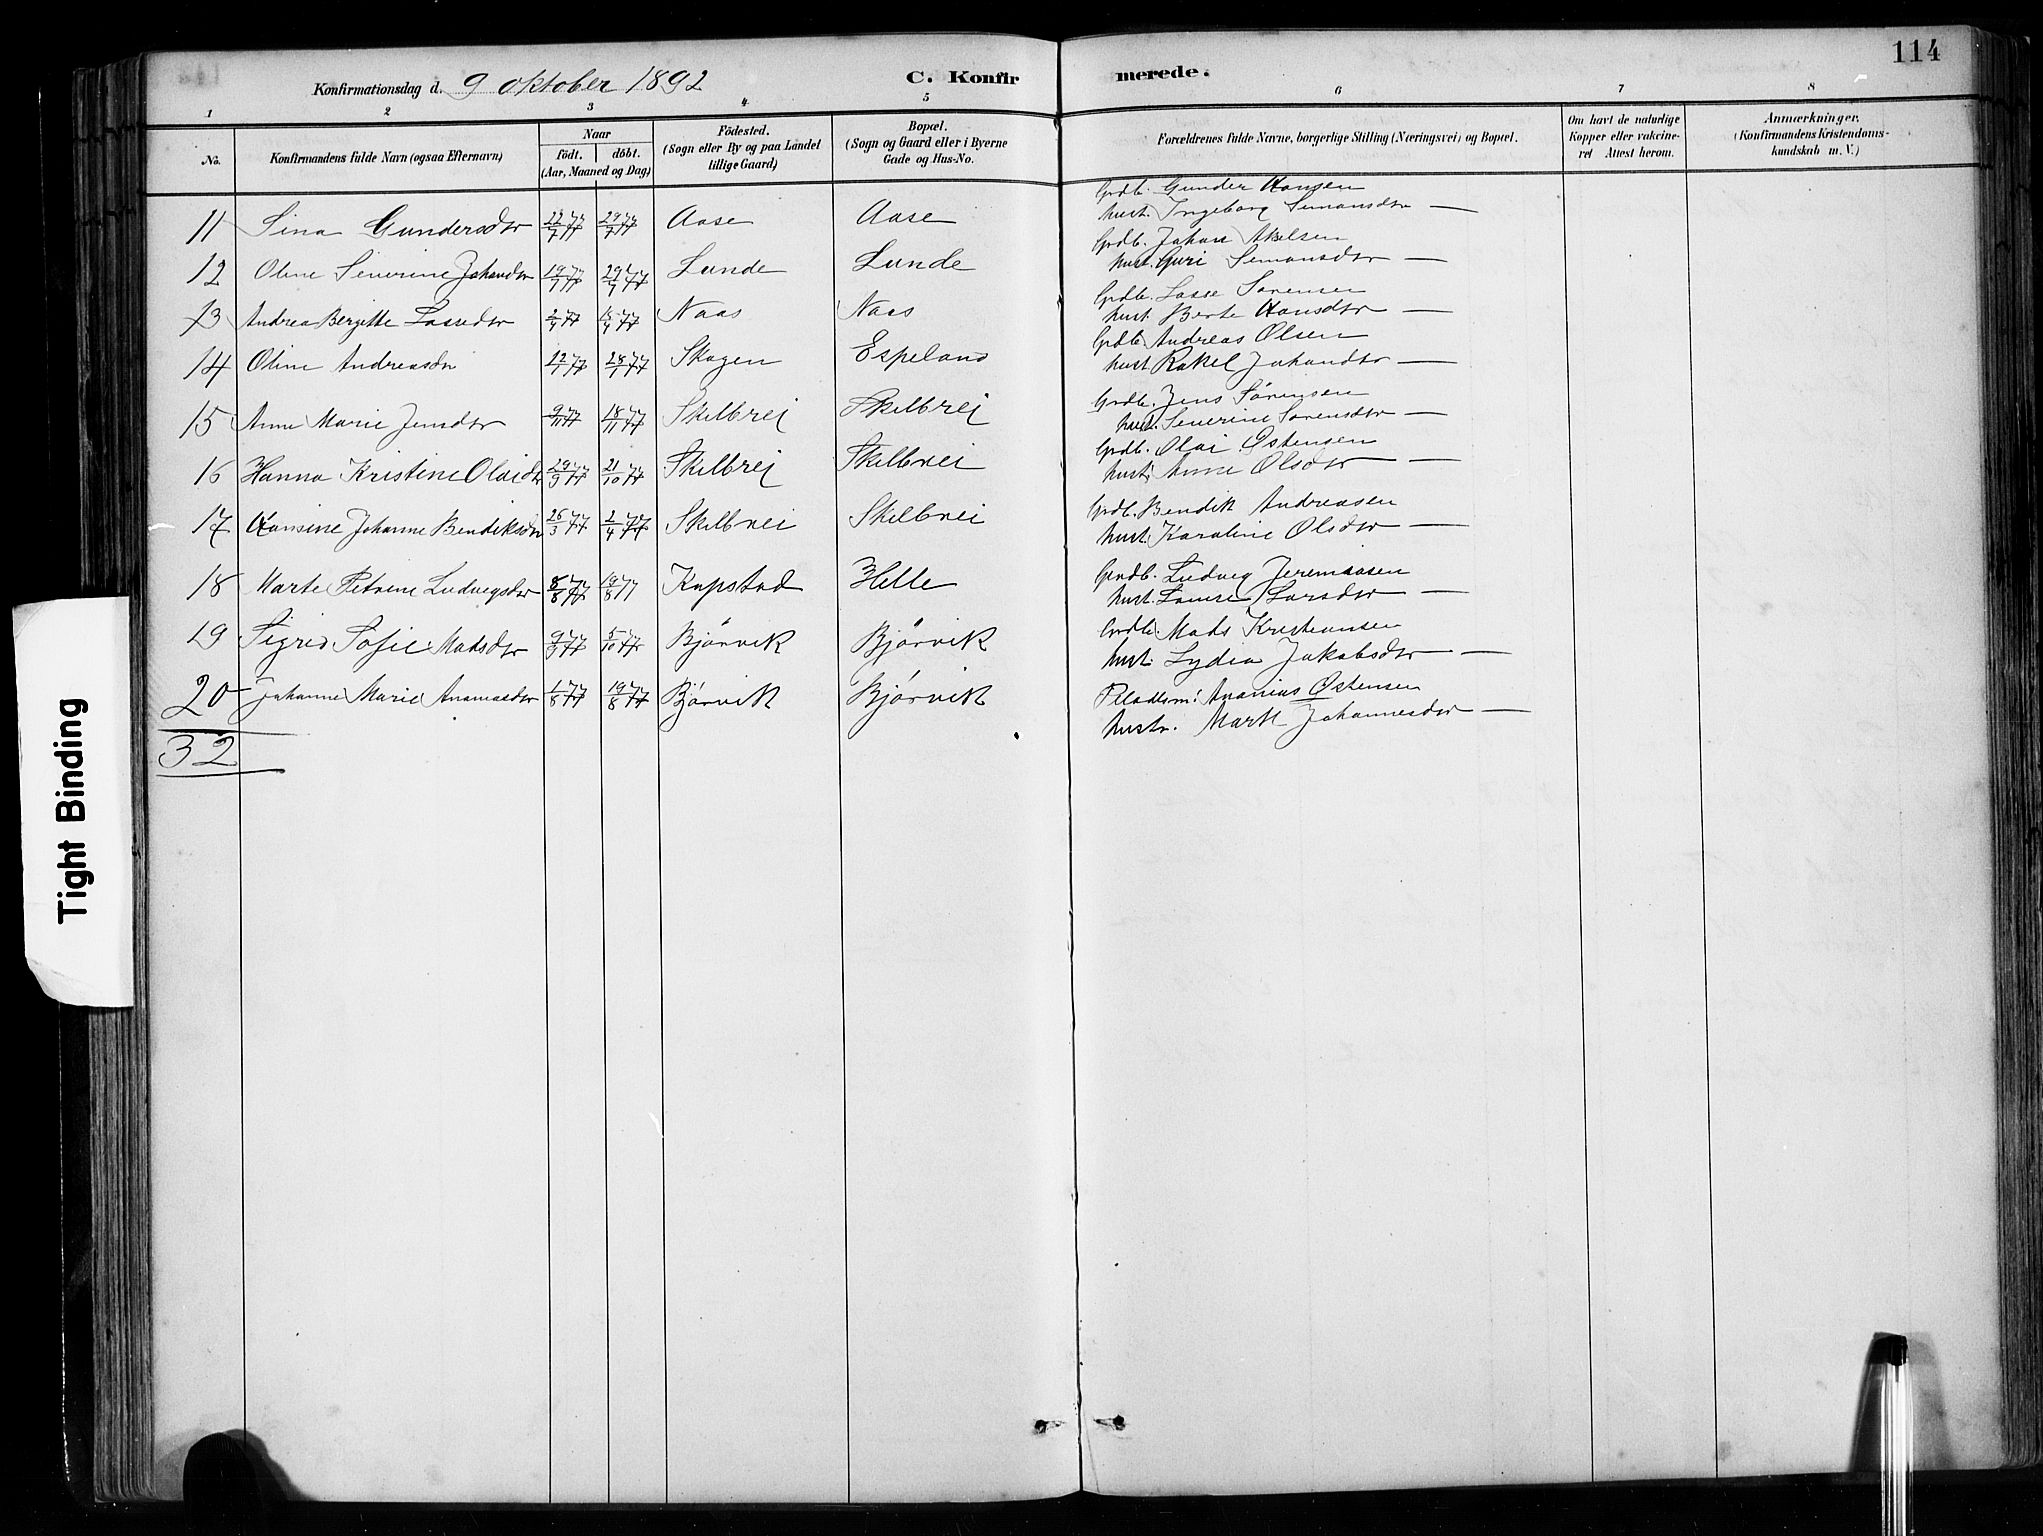 114
Konfirmationsdag d. 9 oktober 1892 C. Konfir merede.
1 2 3 4 5 6 7 8
No. Konfirmandens fulde Navn (ogsaa Efternavn) Naar födt. döbt. (Aar, Maaned og Dag) Födested. (Sogn eller By og paa Landet tillige Gaard) Bopæl. (Sogn og Gaard eller i Byerne Gade og Hus-No. Forældrenes fulde Navne, borgerlige Stilling (Næringsvei) og Bopæl. Om havt de naturlige Kopper eller vakcineret Attest herom. Anmærkninger. (Konfirmandens Kristendomskundskab m. V.)
11 Sina Gundersdtr 22/7 77 29/7 77 Aase Aase Grdb. Gunder Hansen
hust. Ingeborg Simonsdtr —
12 Oline Severine Johansdtr 19/7 77 29/7 77 Lunde Lunde Grdb. Johan Akelsen
hust. Guri Simonsdtr —
13 Andrea Bergitte Lassedtr 2/4 77 15/4 77 Naas Naas Grdb. Lasse Sørensen
hust. Berte Hansdtr —
14 Oline Andreasdtr 12/1 77 28/1 77 Skogen Espeland Grdb. Andreas Olsen
hust Rakel Johansdtr —
15 Anne Marie Jensdtr 9/11 77 18/11 77 Skilbrei Skilbrei Grdb. Jens Sørensen
hust. Severine Sørensdtr —
16 Hanna Kristine Olaidtr 29/9 77 21/10 77 Skilbrei Skilbrei Grdb. Olai Østensen
hust. Anne Olsdtr —
17 Hansine Johanne Bendiksdtr 26/3 77 2/4 77 Skilbrei Skilbrei Grdb. Bendik Andreasen
hust. Karoline Olsdtr —
18 Marte Petrine Ludvigsdtr 8/8 77 19/8 77 Kapstad Helle Grdb. Ludvig Jeremiasen
hust. Lovise Larsdtr —
19 Sigrid Sofie Madsdtr 9/9 77 5/10 77 Bjørvik Bjørvik Grdb. Mads Kristiansen
hust. Lydia Jakobsdtr —
20 Johanne Marie Ananiasdtr 1/8 77 19/8 77 Bjørvik Bjørvik Pladsm: Ananias Østensen
hustr. Marte Johannesdtr —
32
Tight Binding